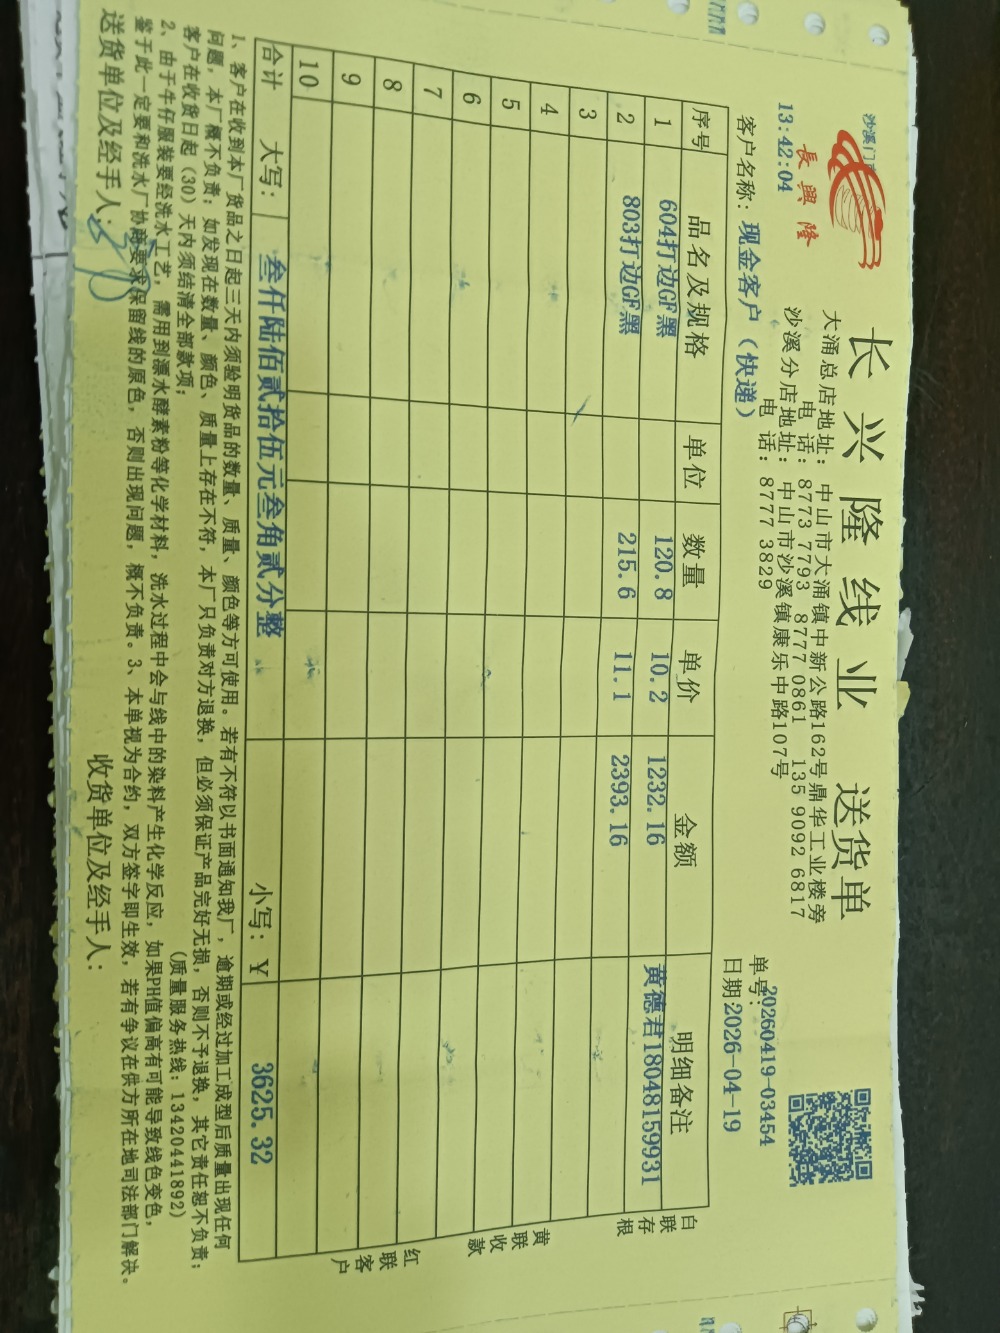 沙溪门
13:42:04
長興隆
长兴隆线业 送货单
大涌总店地址：中山市大涌镇中新公路162号鼎华工业楼旁
电 话：8773 7793 8777 0861 135 9092 6817
沙溪分店地址：中山市沙溪镇康乐中路107号
电 话：8777 3829
单号：20260419-03454
客户名称：现金客户（快递）
日期:2026-04-19
序号 品名及规格 单位 数量 单价 金额 明细备注
1 604打边GF黑 120.8 10.2 1232.16 黄德君18048159931
2 803打边GF黑 215.6 11.1 2393.16
3
4
5
6
7
8
9
10
合计 大写：叁仟陆佰贰拾伍元叁角贰分整 小写：￥ 3625.32
白联存根
黄联收款
红联客户
1、客户在收到本厂货品之日起三天内须验明货品的数量、质量、颜色等方可使用。若有不符以书面通知我厂，逾期或经过加工成型后质量出现任何
问题，本厂概不负责；如发现在数量、颜色、质量上存在不符，本厂只负责对方退换，但必须保证产品完好无损，否则不予退换，其它责任恕不负责；
客户在收货日起（30）天内须结清全部款项； (质量服务热线：13420441892)
2、由于牛仔服装要经洗水工艺，需用到漂水酵素粉等化学材料，洗水过程中会与线中的染料产生化学反应，如果PH值偏高有可能导致线色变色，
鉴于此一定要和洗水厂协商要求保留线的原色，否则出现问题，概不负责。3、本单视为合约，双方签字即生效，若有争议在供方所在地司法部门解决。
送货单位及经手人： 收货单位及经手人：